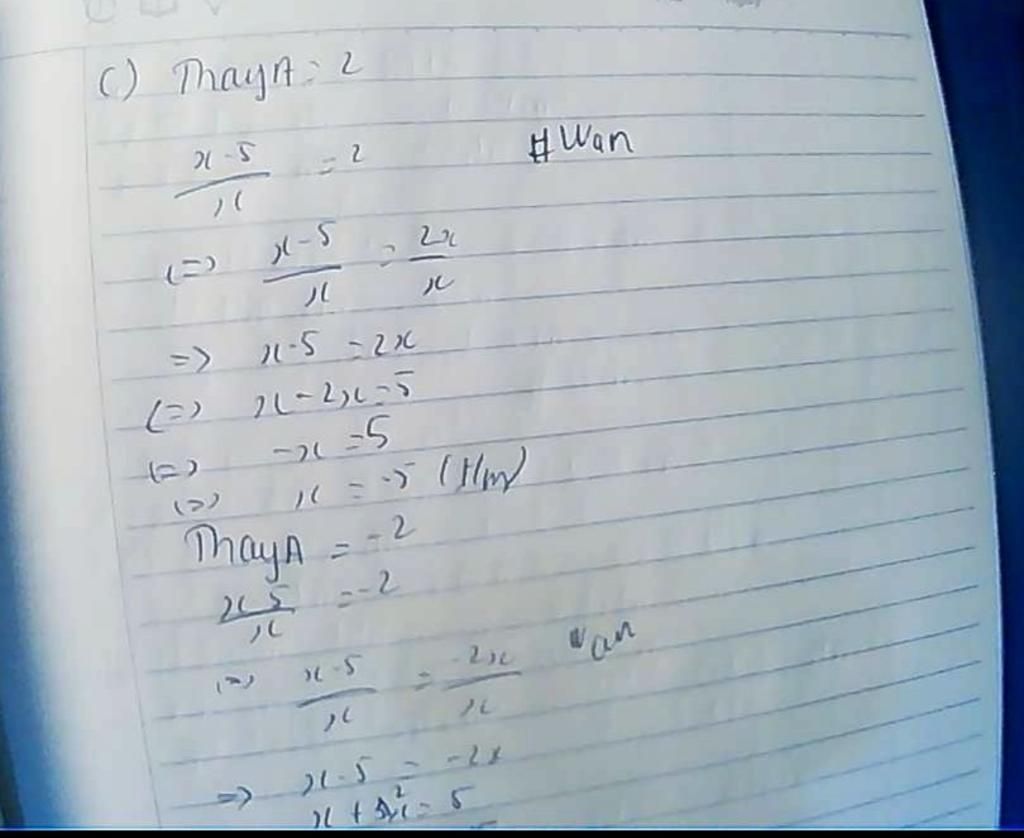 c) Thay A = 2
x-5/x = 2 #Wan
(=) x-5/x = 2x/x
=> x-5 = 2x
(=) x-2x=5
(=) -x = 5
(=) x = -5 (t/m)
Thay A = -2
x-5/x = -2
(=) x-5/x = -2x/x
=> x-5 = -2x
x + 2x = 5